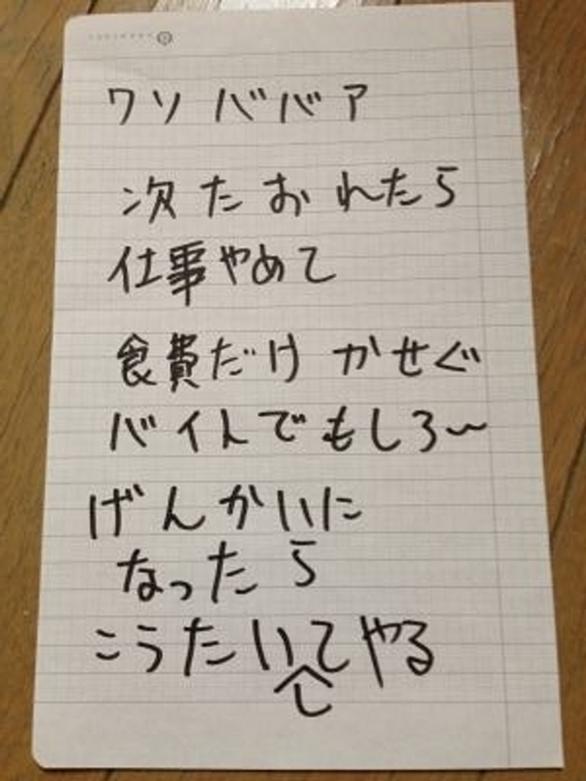 ワソ ババア
次たおれたら
仕事やめて
食費だけ かせぐ
バイトでもしろ〜
げんかいに
なったら
こうたいしてやる